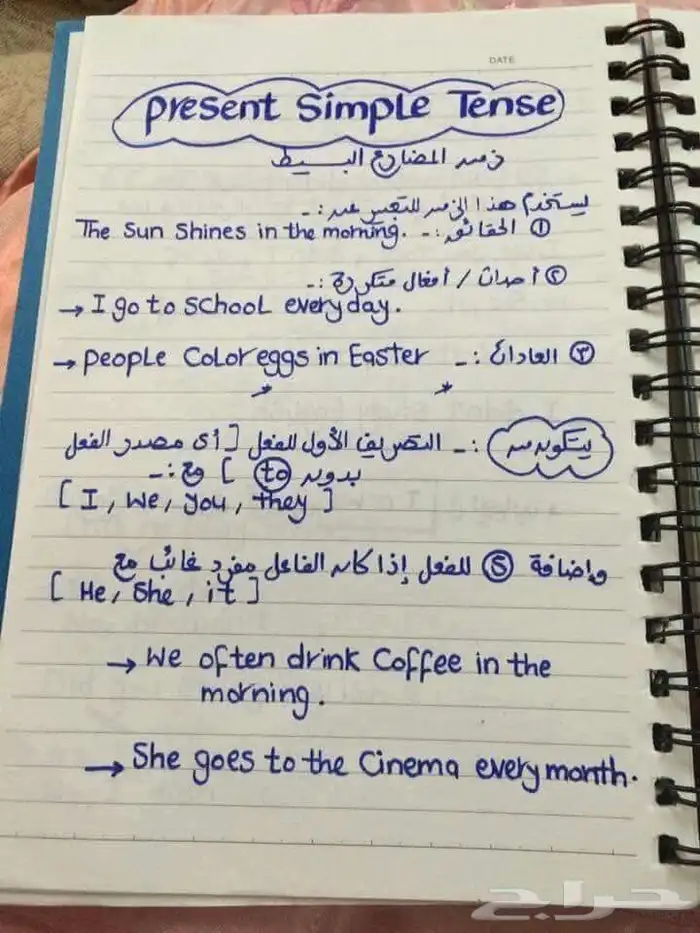 DATE
Present Simple Tense
زمن المضارع البسيط
يستخدم هذا الزمن للتعبير عن :-
① الحقائق :- The Sun Shines in the morning.
② أحداث / أفعال متكررة :-
→ I go to school every day.
③ العادات :- → people Color eggs in Easter
يتكون من :- التصريف الأول للفعل [ أي مصدر الفعل
بدون to ] مع :-
[ I, we, you, they ]
وإضافة S للفعل إذا كان الفاعل مفرد غائب مع
[ He, She, it ]
→ We often drink Coffee in the
morning.
→ She goes to the Cinema every month.
حراج